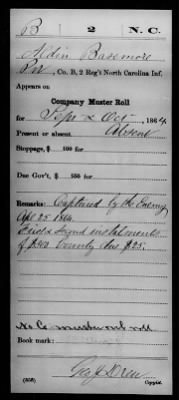 B 2 N.C.
Aldin Basemore
Pvt, Co. B, 2 Reg't North Carolina Inf.
Appears on
Company Muster Roll
for Sept & Oct, 1864.
Present or absent, Absent
Stoppage, $ 100 for
Due Gov't, $ 100 for
Remarks: Captured by the Enemy
Apr 25 1864.
First & Second instalments
of $240 bounty due $25.
No Co muster out roll
Book mark:
(358) Copyist.